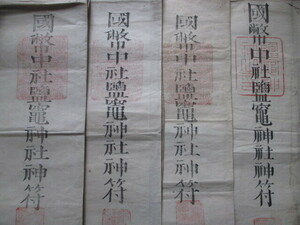 國幣中社鹽竈神社神符
國幣中社鹽竈神社神符
國幣中社鹽竈神社神符
國幣中社鹽竈神社神符